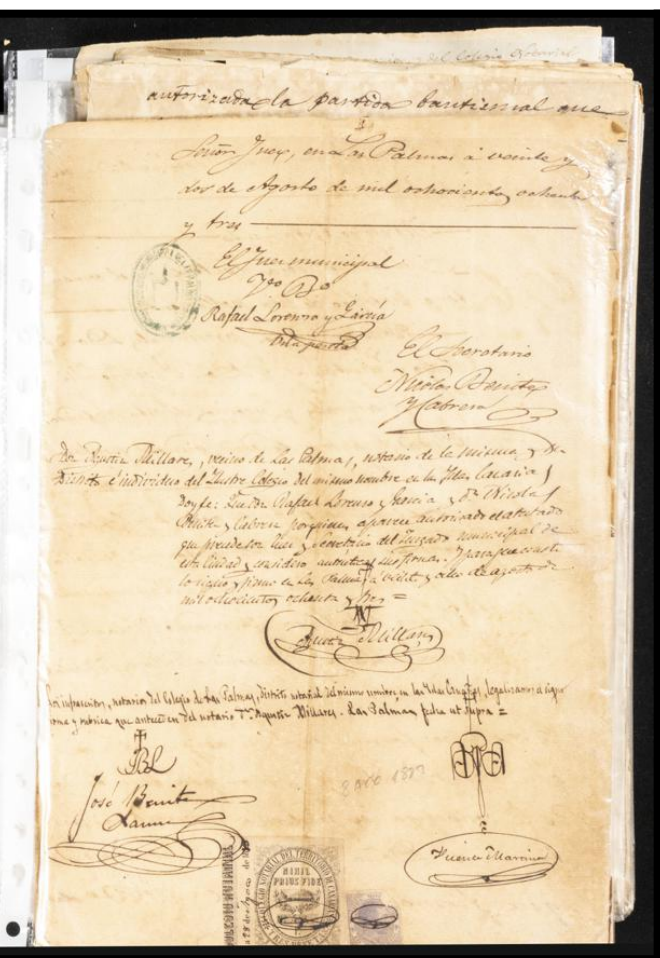 autorizada la partida bautismal que
Señor Juez, en Las Palmas á veinte y
dos de Agosto de mil ochocientos ochenta
y tres
El Juez municipal
Vº Bº
Rafael Lorenzo y García
El Secretario
Nicolas Benitez
y Cabrera
Don Agustin Millares, vecino de Las Palmas, notario de la misma y su
Distrito é individuo del Ilustre Colegio del mismo nombre en las Islas Canarias
Doy fe: Que Don Rafael Lorenzo y García y Dn Nicolas
Benitez y Cabrera por quienes aparece autorizado el atestado
que precede son Juez y Secretario del Juzgado municipal de
esta Ciudad y considero auténticas sus firmas. Y para que conste
lo signo y firmo en Las Palmas á veinte y ocho de agosto de
mil ochocientos ochenta y tres =
Agustin Millares
Los infrascritos, notarios del Colegio de Las Palmas, distrito notarial del mismo nombre en las Islas Canarias, legalizamos el signo
firma y rubrica que anteceden del notario Dn Agustin Millares. Las Palmas fecha ut supra =
José Benitez
Larena
Vicente Martinez
COLEGIO NOTARIAL DEL TERRITORIO DE CANARIAS
NIHIL
PRIUS FIDE